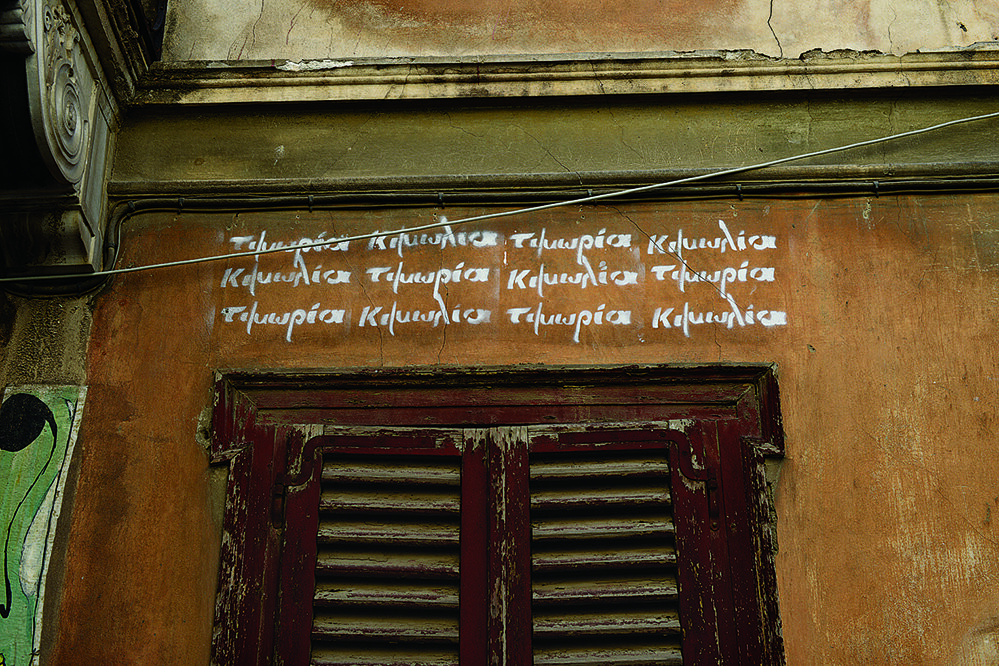 Τιμωρία Κιμωλία Τιμωρία Κιμωλία
Κιμωλία Τιμωρία Κιμωλία Τιμωρία
Τιμωρία Κιμωλία Τιμωρία Κιμωλία